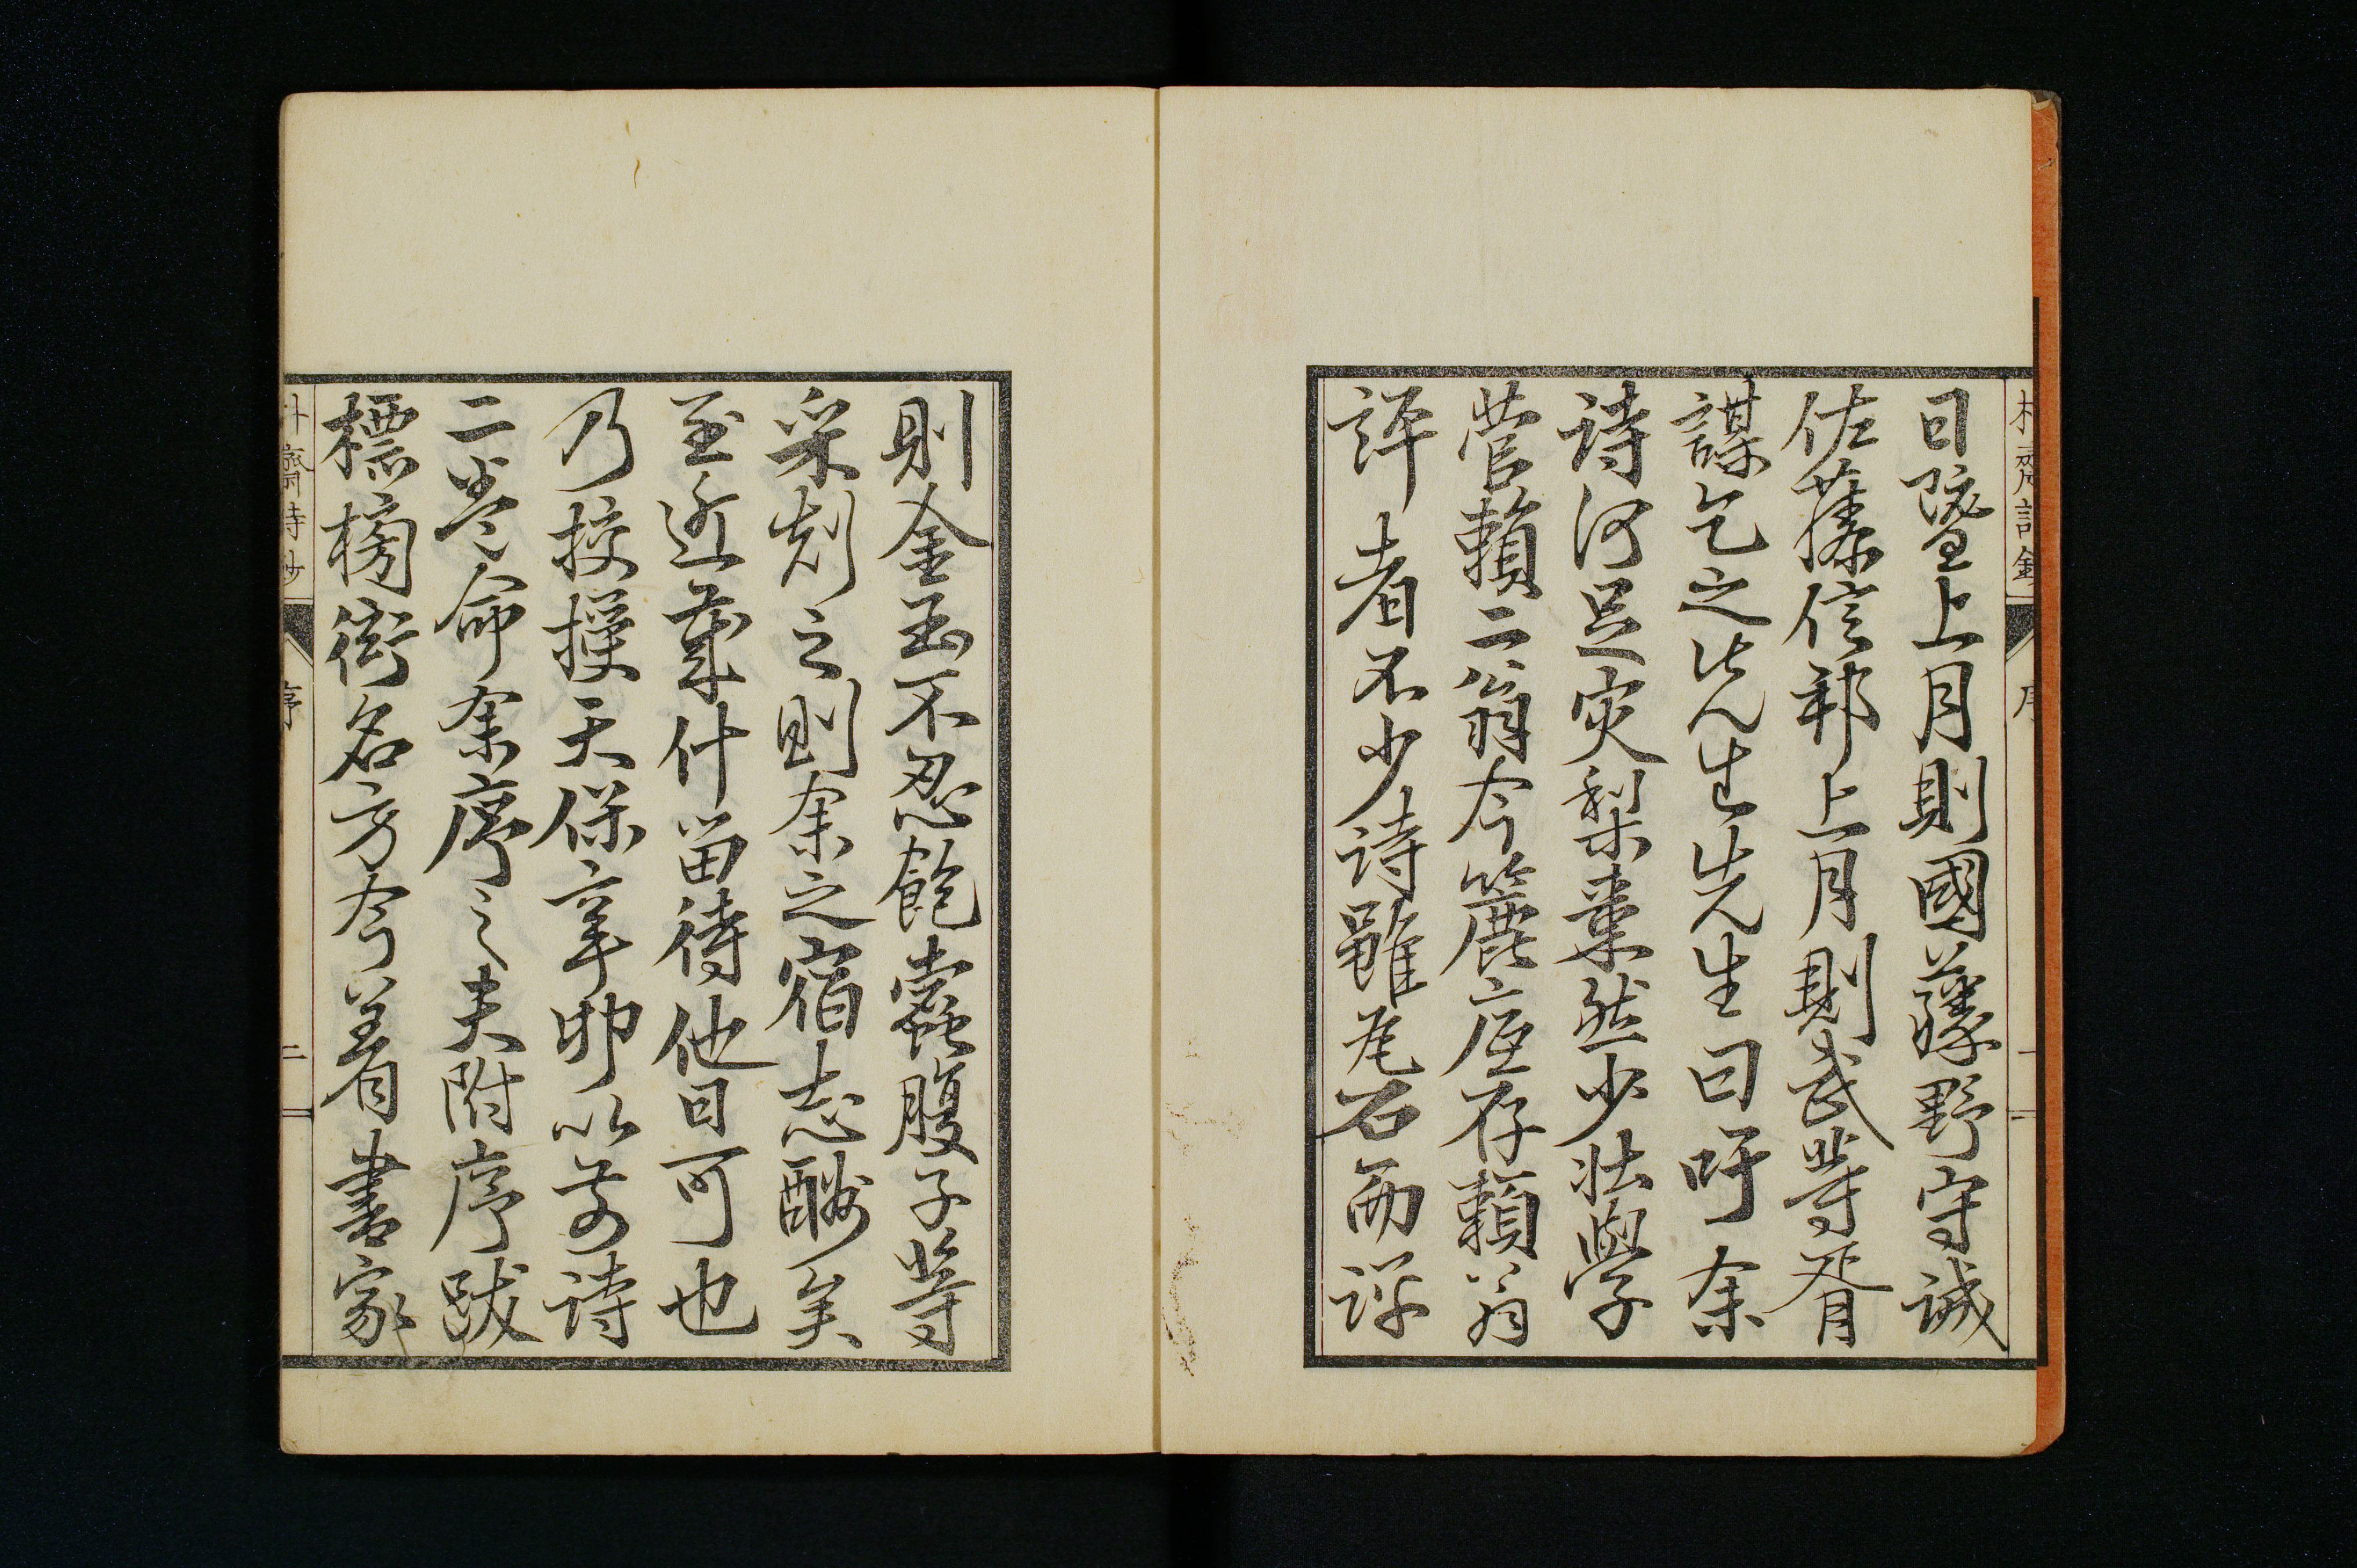 日曁上月則國藤野守誠
佐藤信邦上月則武等胥
謀乞之先生先生曰吁余
詩何足灾梨棗然少壯學
菅賴二翁今簏底存賴翁
評者不少詩雖瓦石而評
則金玉不忍飽蠹腹子等
采刻之則余之宿志酬矣
至近華什留待他日可也
乃授撰天保辛卯以前詩
二卷命余序之夫附序跋
標榜衒名方今著書家
朴齋詩鈔 序 一
朴齋詩鈔 序 二